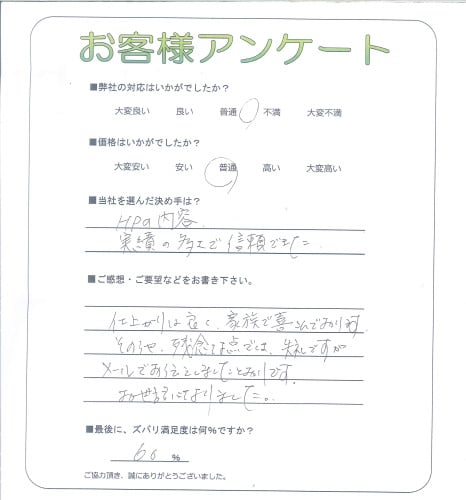 お客様アンケート
■弊社の対応はいかがでしたか？
大変良い 良い 普通 不満 大変不満
■価格はいかがでしたか？
大変安い 安い 普通 高い 大変高い
■当社を選んだ決め手は？
HPの内容
実績の多さで信頼できた
■ご感想・ご要望などをお書き下さい。
仕上がりは良く、家族で喜んでおります。
その他、残念な点では、失礼ですが
メールでお伝えしましたとおりです。
お世話になりました。
■最後に、ズバリ満足度は何％ですか？
60 ％
ご協力頂き、誠にありがとうございました。